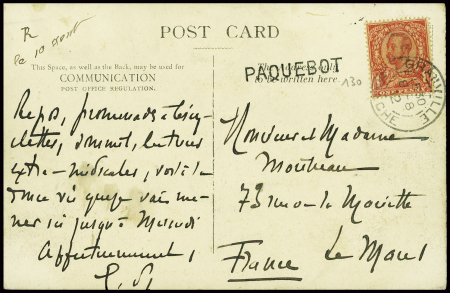 R
le 10 août
POST CARD
This Space, as well as the Back, may be used for
COMMUNICATION
POST OFFICE REGULATION.
The
to be written here.
PAQUEBOT
130
GRANVILLE
8
12
CHE
Repos, promenades à bicy-
clettes, sommeil, lectures
extra-médicales, voilà la
douce vie que je vais me-
ner ici jusqu'à Mercredi
Affectueusement,
Monsieur et Madame
73 rue de la
Le Mans
France